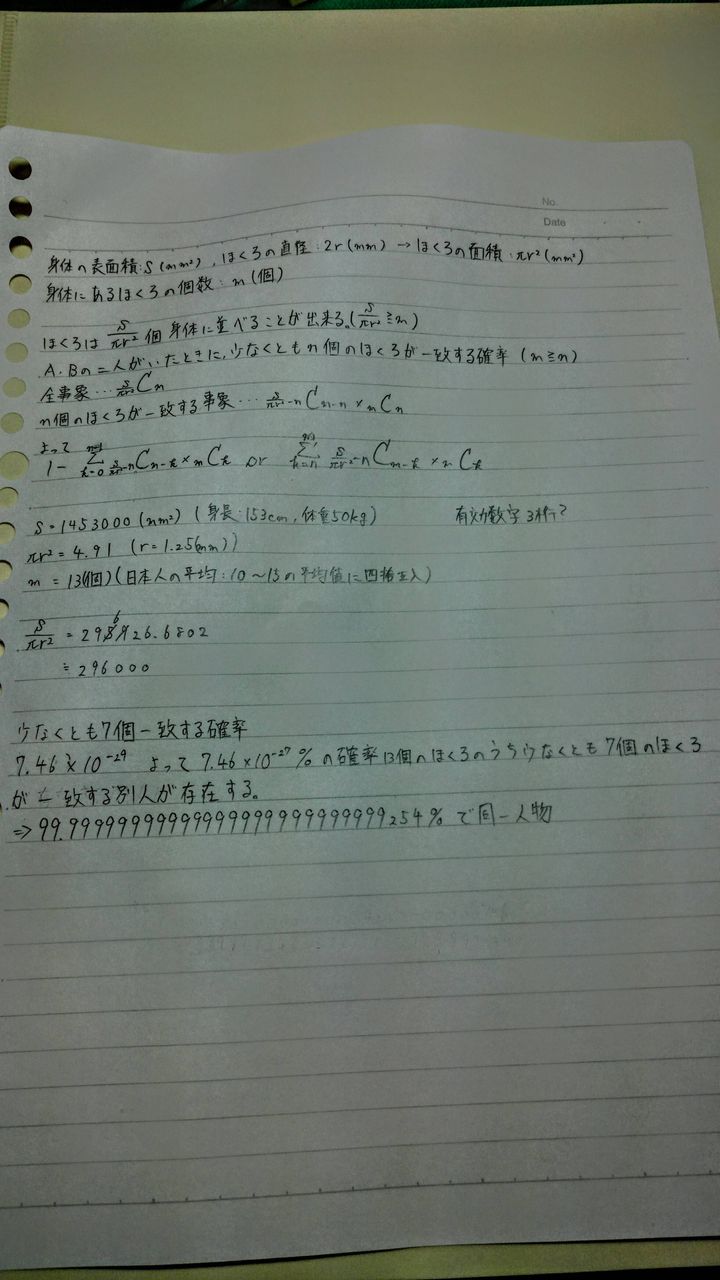 No.
Date
身体の表面積:S(mm²), ほくろの直径:2r(mm) → ほくろの面積:πr²(mm²)
身体にあるほくろの個数:m(個)
ほくろは S/πr² 個 身体に並べることが出来る。(S/πr² ≧ m)
A.Bの二人がいたときに、少なくともn個のほくろが一致する確率 (m≧n)
全事象… S/πr² C m
n個のほくろが一致する事象… S/πr²-n C m-n × m C n
よって
1- Σ k=0 S/πr²-n C m-k × m C k or Σ k=n S/πr²-n C m-k × n C k
S=1453000(mm²) (身長:153cm, 体重50kg) 有効数字3桁?
πr²=4.91 (r=1.25(mm))
m = 13(個)(日本人の平均:10~15の平均値に四捨五入)
S/πr² = 295926.6802
≒ 296000
少なくとも7個一致する確率
7.46×10⁻²⁹ よって 7.46×10⁻²⁷%の確率13個のほくろのうち少なくとも7個のほくろ
が一致する別人が存在する。
で同一人物